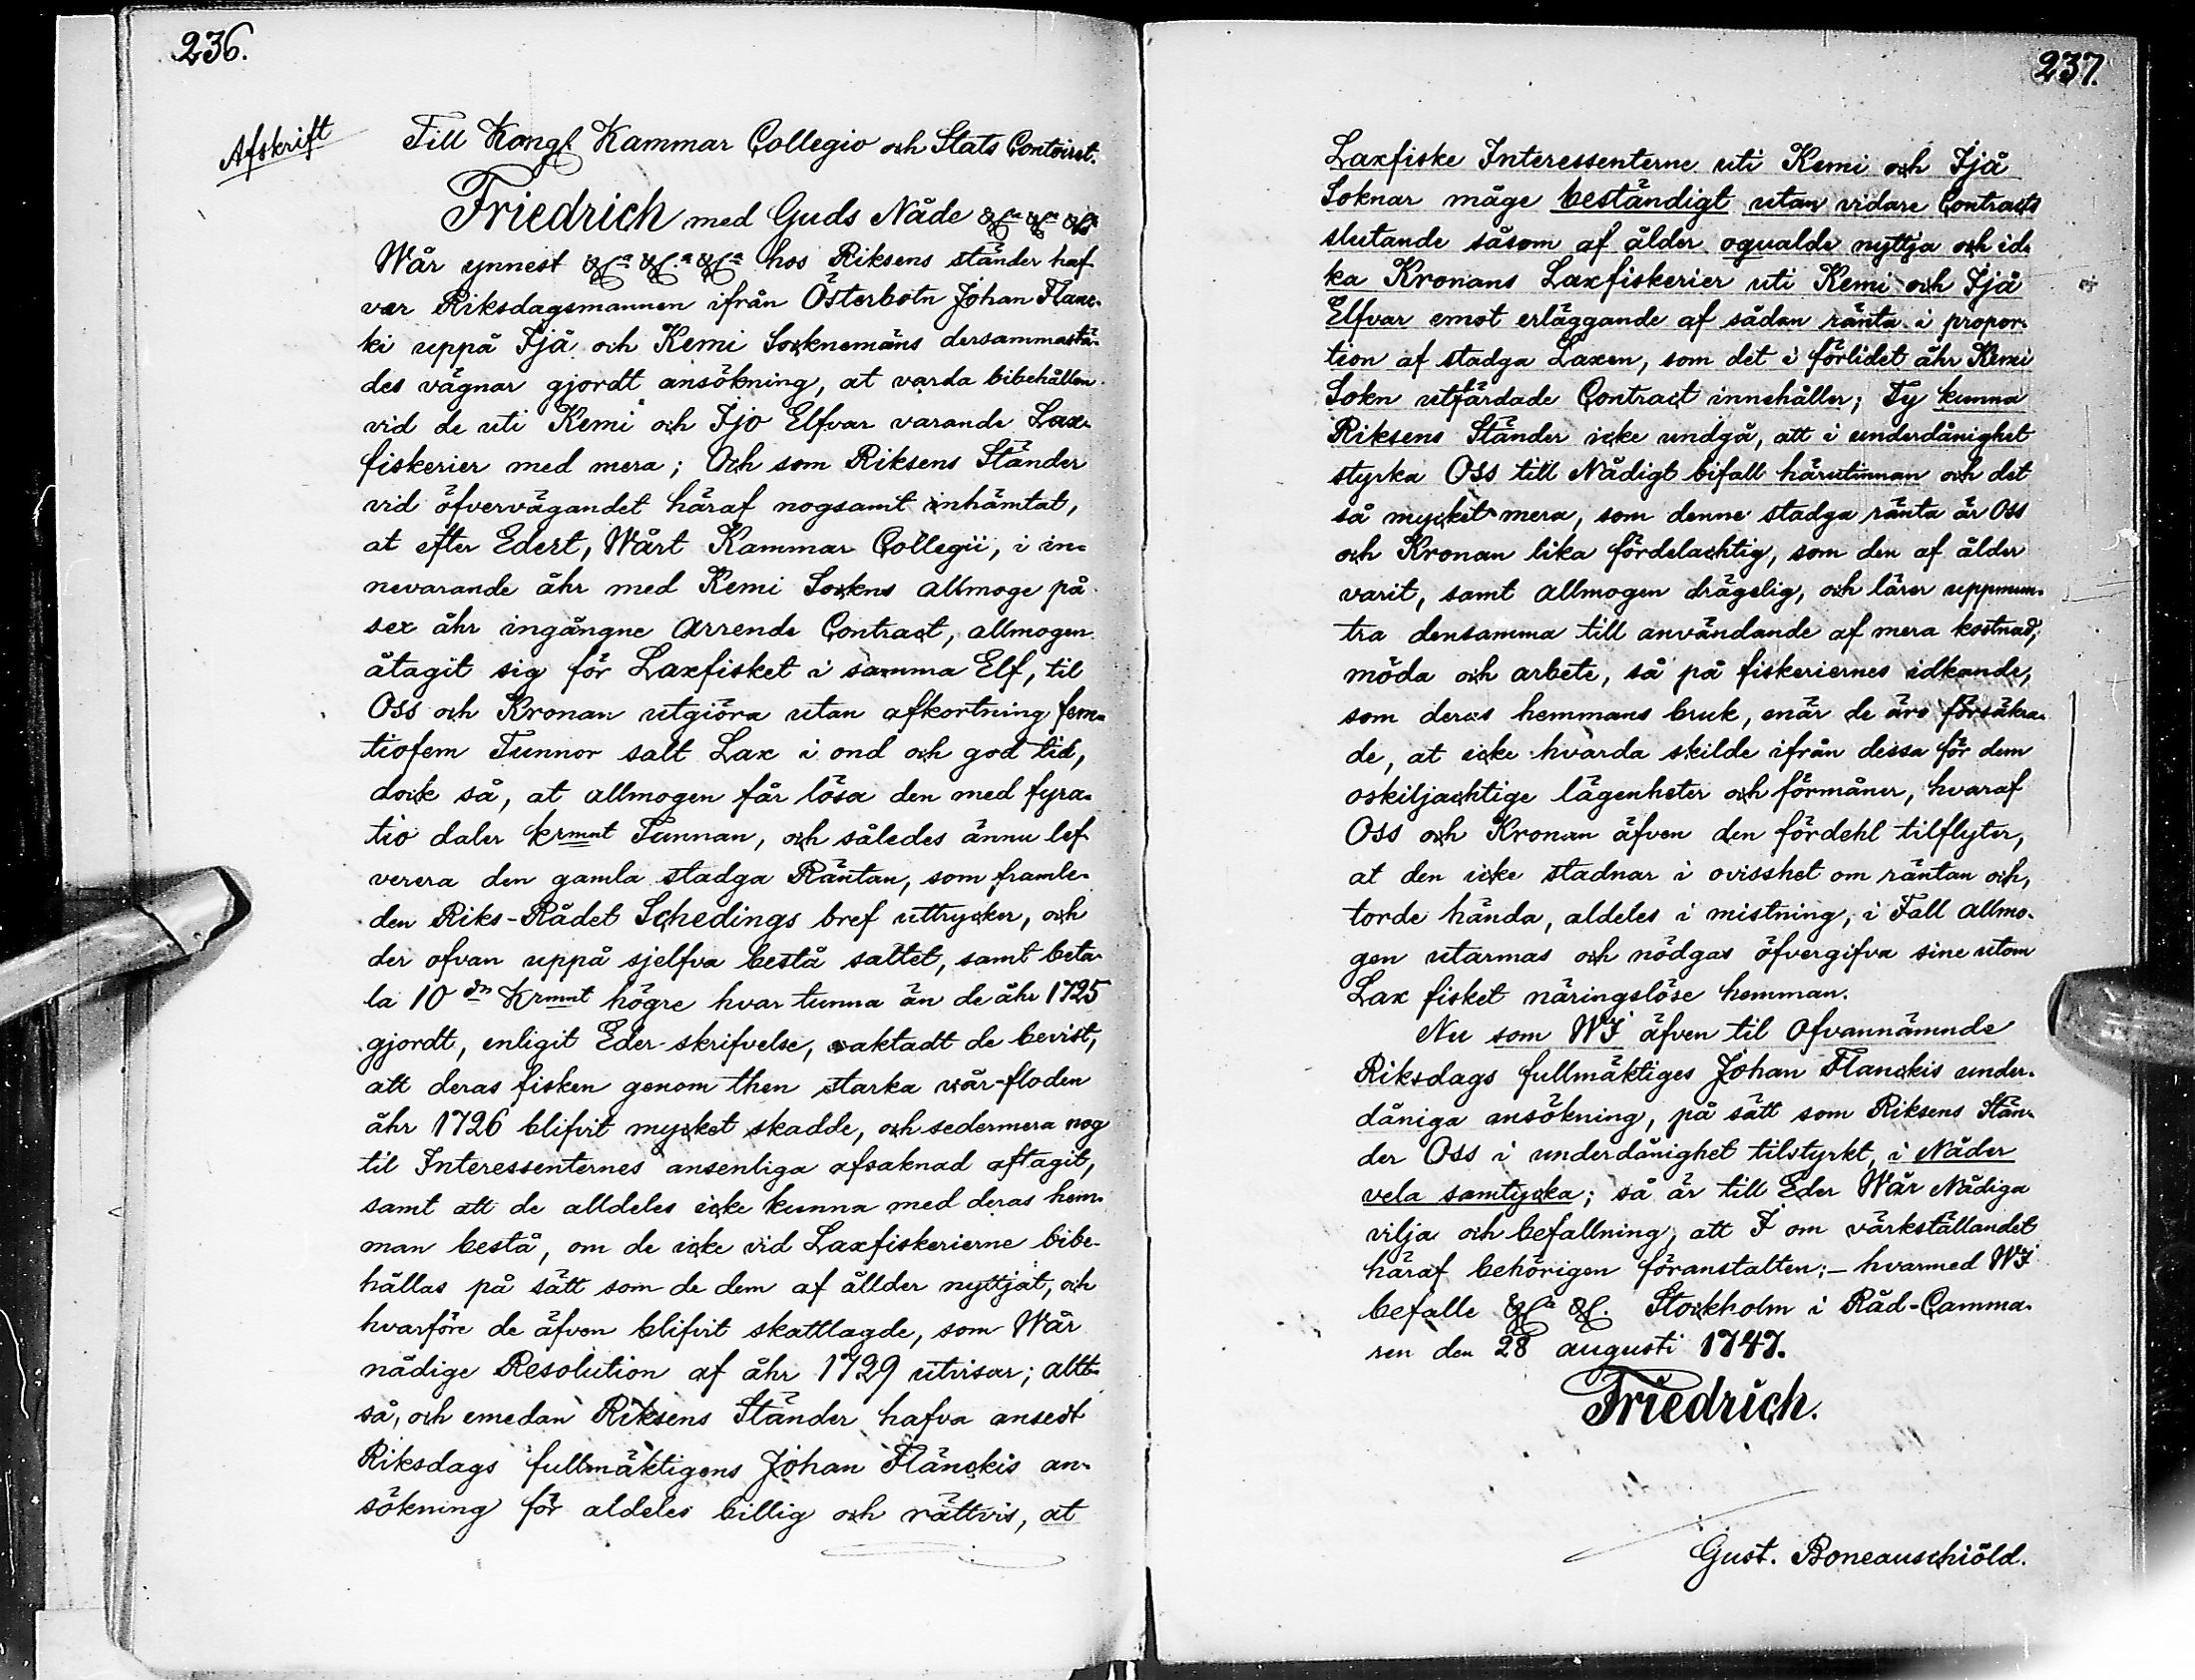 236.
Afskrift
Till Kongl Kammar Collegio och Stats Contoiret.
Friedrich med Guds Nåde &c:a &c:a &c:a
Wår ynnest &c:a &c:a &c:a hos Riksens ständer haf
ver Riksdagsmannen ifrån Österbotn Johan Flanc-
ki uppå Ijå och Kemi Socknemäns dersammastä-
des vägnar gjordt ansökning, at varda bibehållen
vid de uti Kemi och Ijo Elfvar varande Lax-
fiskerier med mera; Och som Riksens Ständer
vid öfvervägandet häraf nogsamt inhämtat,
at efter Edert, Wårt Kammar Collegii, i in-
nevarande åhr med Kemi Sockns allmoge på
sex åhr ingångne Arrende Contract, allmogen
åtagit sig för Laxfisket i samma Elf, til
Oss och Kronan utgiöra utan afkortning fem-
tiofem Tunnor salt Lax i ond och god tid,
dock så, at allmogen får lösa den med fyra-
tio daler krmnt Tunnan, och således ännu lef
verera den gamla stadga Räntan, som framle-
den Riks-Rådet Schedings bref uttrycker, och
der ofvan uppå sjelfva bestå saltet, samt beta-
la 10 dr Krmnt högre hvar tunna än de åhr 1725
gjordt, enligit Eder skrifvelse, oaktadt de bevist,
att deras fisken genom then starka vår-floden
åhr 1726 blifvit mycket skadde, och sedermera nog
til Interessenternes ansenliga afsaknad aftagit,
samt att de alldeles icke kunna med deras hem-
man bestå, om de icke vid Laxfiskerierne bibe-
hållas på sätt som de dem af ållder nyttjat, och
hvarföre de äfven blifvit skattlagde, som Wår
nådige Resolution af åhr 1729 utvisar; allt-
så, och emedan Riksens Ständer hafva ansedt
Riksdags fullmäktigens Johan Flänckis an-
sökning för aldeles billig och rättvis, at
237.
Laxfiske Interessenterne uti Kemi och Ijå
Soknar måge beständigt utan vidare Contracts
slutande såsom af ålder oqualde nyttja och id-
ka Kronans Laxfiskerier uti Kemi och Ijå
Elfvar emot erläggande af sådan ränta i propor-
tion af stadga Laxen, som det i förlidet åhr Kemi
Sokn utfärdade Contract innehåller; Ty kunna
Riksens Ständer icke undgå, att i underdånighet
styrka Oss till Nådigt bifall härutinnan och det
så mycket mera, som denne stadga ränta är Oss
och Kronan lika fördelachtig, som den af ålder
varit, samt allmogen drägelig, och lärer uppmun-
tra densamma till användande af mera kostnad,
möda och arbete, så på fiskeriernes idkande,
som deras hemmans bruk, enär de äro försäkra-
de, at icke hvarda skilde ifrån dessa för dem
oskiljachtige lägenheter och förmåner, hvaraf
Oss och Kronan äfven den fördehl tilflyter,
at den icke stadnar i ovisshet om räntan och,
torde hända, aldeles i mistning, i Fall allmo-
gen utarmas och nödgas öfvergifva sine utom
Lax fisket näringslöse hemman.
Nu som WI äfven til Ofvannämnde
Riksdags fullmäktiges Johan Flanckis under-
dåniga ansökning, på sätt som Riksens Stän-
der Oss i underdånighet tilstyrkt, i Nåder
vela samtycka; så är till Eder Wår Nådiga
vilja och befallning, att I om värkställandet
häraf behörigen föranstalten;- hvarmed WI
befalle &c:a &c. Stockholm i Råd-Camma-
ren den 28 augusti 1747.
Friedrich.
Gust. Boneauschiöld.